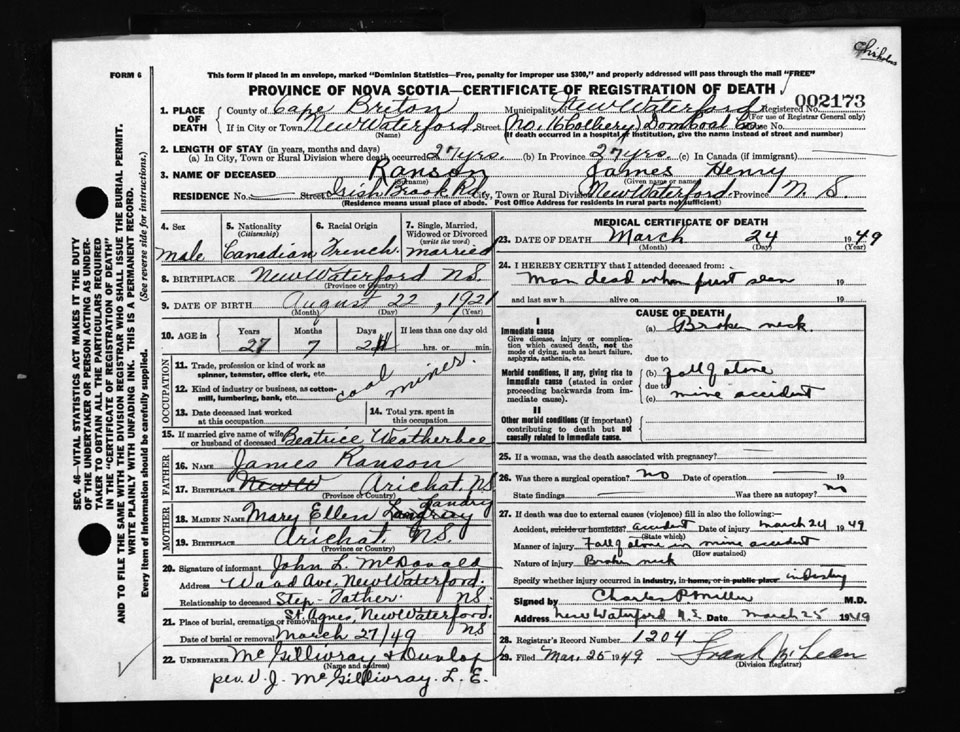 Chisholm
FORM 6
This form if placed in an envelope, marked "Dominion Statistics—Free, penalty for improper use $300," and properly addressed will pass through the mail "FREE"
PROVINCE OF NOVA SCOTIA—CERTIFICATE OF REGISTRATION OF DEATH
002173
1. PLACE OF DEATH
County of Cape Breton Municipality of New Waterford Registered No.
(For use of Registrar General only)
If in City or Town New Waterford Street (No. 16 Colliery) Dom Coal Co. House No.
(Name) (If death occurred in a hospital or institution, give the name instead of street and number)
2. LENGTH OF STAY (in years, months and days)
(a) In City, Town or Rural Division where death occurred 27 yrs. (b) In Province 27 yrs. (c) In Canada (if immigrant)
3. NAME OF DECEASED Ranson James Henry
(Surname) (Given name or names)
RESIDENCE No. Street Irish Brook Rd City, Town or Rural Division New Waterford Province N. S.
(Residence means usual place of abode. Post Office Address for residents in rural parts not sufficient)
4. Sex male
5. Nationality (Citizenship) Canadian
6. Racial Origin French
7. Single, Married, Widowed or Divorced (write the word) married
8. BIRTHPLACE New Waterford NS.
(Province or Country)
9. DATE OF BIRTH August 22, 1921
(Month) (Day) (Year)
10. AGE in Years Months Days If less than one day old
27 7 hrs. or min.
OCCUPATION
11. Trade, profession or kind of work as spinner, teamster, office clerk, etc.
12. Kind of industry or business, as cotton-mill, lumbering, bank, etc.
coal miner.
13. Date deceased last worked at this occupation
14. Total yrs. spent in this occupation
15. If married give name of wife or husband of deceased Beatrice Weatherbee
FATHER
16. NAME James Ranson
17. BIRTHPLACE New W Arichat, NS
(Province or Country)
MOTHER
18. MAIDEN NAME Mary Ellen Landry
Landry
19. BIRTHPLACE Arichat, N.S.
(Province or Country)
20. Signature of informant John L. McDonald
Address Wood Ave, New Waterford.
Relationship to deceased Step-Father NS.
21. Place of burial, cremation or removal St Agnes, New Waterford.
Date of burial or removal March 27/49 NS
22. UNDERTAKER McGillivray & Dunlop
(Name and address)
per. V. J. McGillivray. L. E.
MEDICAL CERTIFICATE OF DEATH
23. DATE OF DEATH March 24 1949
(Month) (Day) (Year)
24. I HEREBY CERTIFY that I attended deceased from:
Man dead when first seen 19
and last saw h alive on 19
CAUSE OF DEATH
I
Immediate cause
Give disease, injury or complication which caused death, not the mode of dying, such as heart failure, asphyxia, asthenia, etc.
(a) Broken neck
due to
Morbid conditions, if any, giving rise to immediate cause (stated in order proceeding backwards from immediate cause).
(b) Fall of stone
due to
(c) mine accident
II
Other morbid conditions (if important) contributing to death but not causally related to immediate cause.
25. If a woman, was the death associated with pregnancy?
26. Was there a surgical operation? No Date of operation 19
State findings Was there an autopsy? No
27. If death was due to external causes (violence) fill in also the following:—
Accident, suicide or homicide? accident Date of injury March 24 1949
(State which)
Manner of injury Fall of stone in mine accident
(How sustained)
Nature of injury Broken neck
Specify whether injury occurred in industry, in home, or in public place
Signed by Charles P Miller M.D.
Address New Waterford N.S. Date March 25 1949
28. Registrar's Record Number 1204
29. Filed Mar. 25 1949 Frank McLean
(Division Registrar)
SEC. 46—VITAL STATISTICS ACT MAKES IT THE DUTY
OF THE UNDERTAKER OR PERSON ACTING AS UNDER-
TAKER TO OBTAIN ALL THE PARTICULARS REQUIRED
IN THE "CERTIFICATE OF REGISTRATION OF DEATH"
AND TO FILE THE SAME WITH THE DIVISION REGISTRAR WHO SHALL ISSUE THE BURIAL PERMIT.
WRITE PLAINLY WITH UNFADING INK. THIS IS A PERMANENT RECORD.
Every item of information should be carefully supplied. (See reverse side for instructions.)